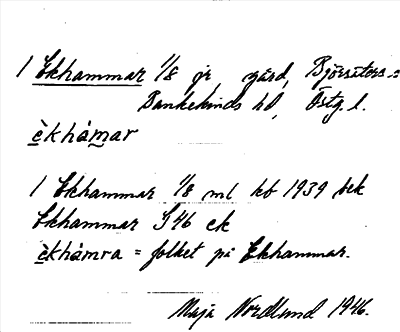 1 Ekhammar 1/8 jr gård, Björsäters s:n
Bankekinds hd, Östg. l.
èkhámar
1 Ekhammar 1/8 ml kb 1939 bek
Ekhammar S46 ek
èkhámra = folket på Ekhammar.
Maja Nordlund 1946.